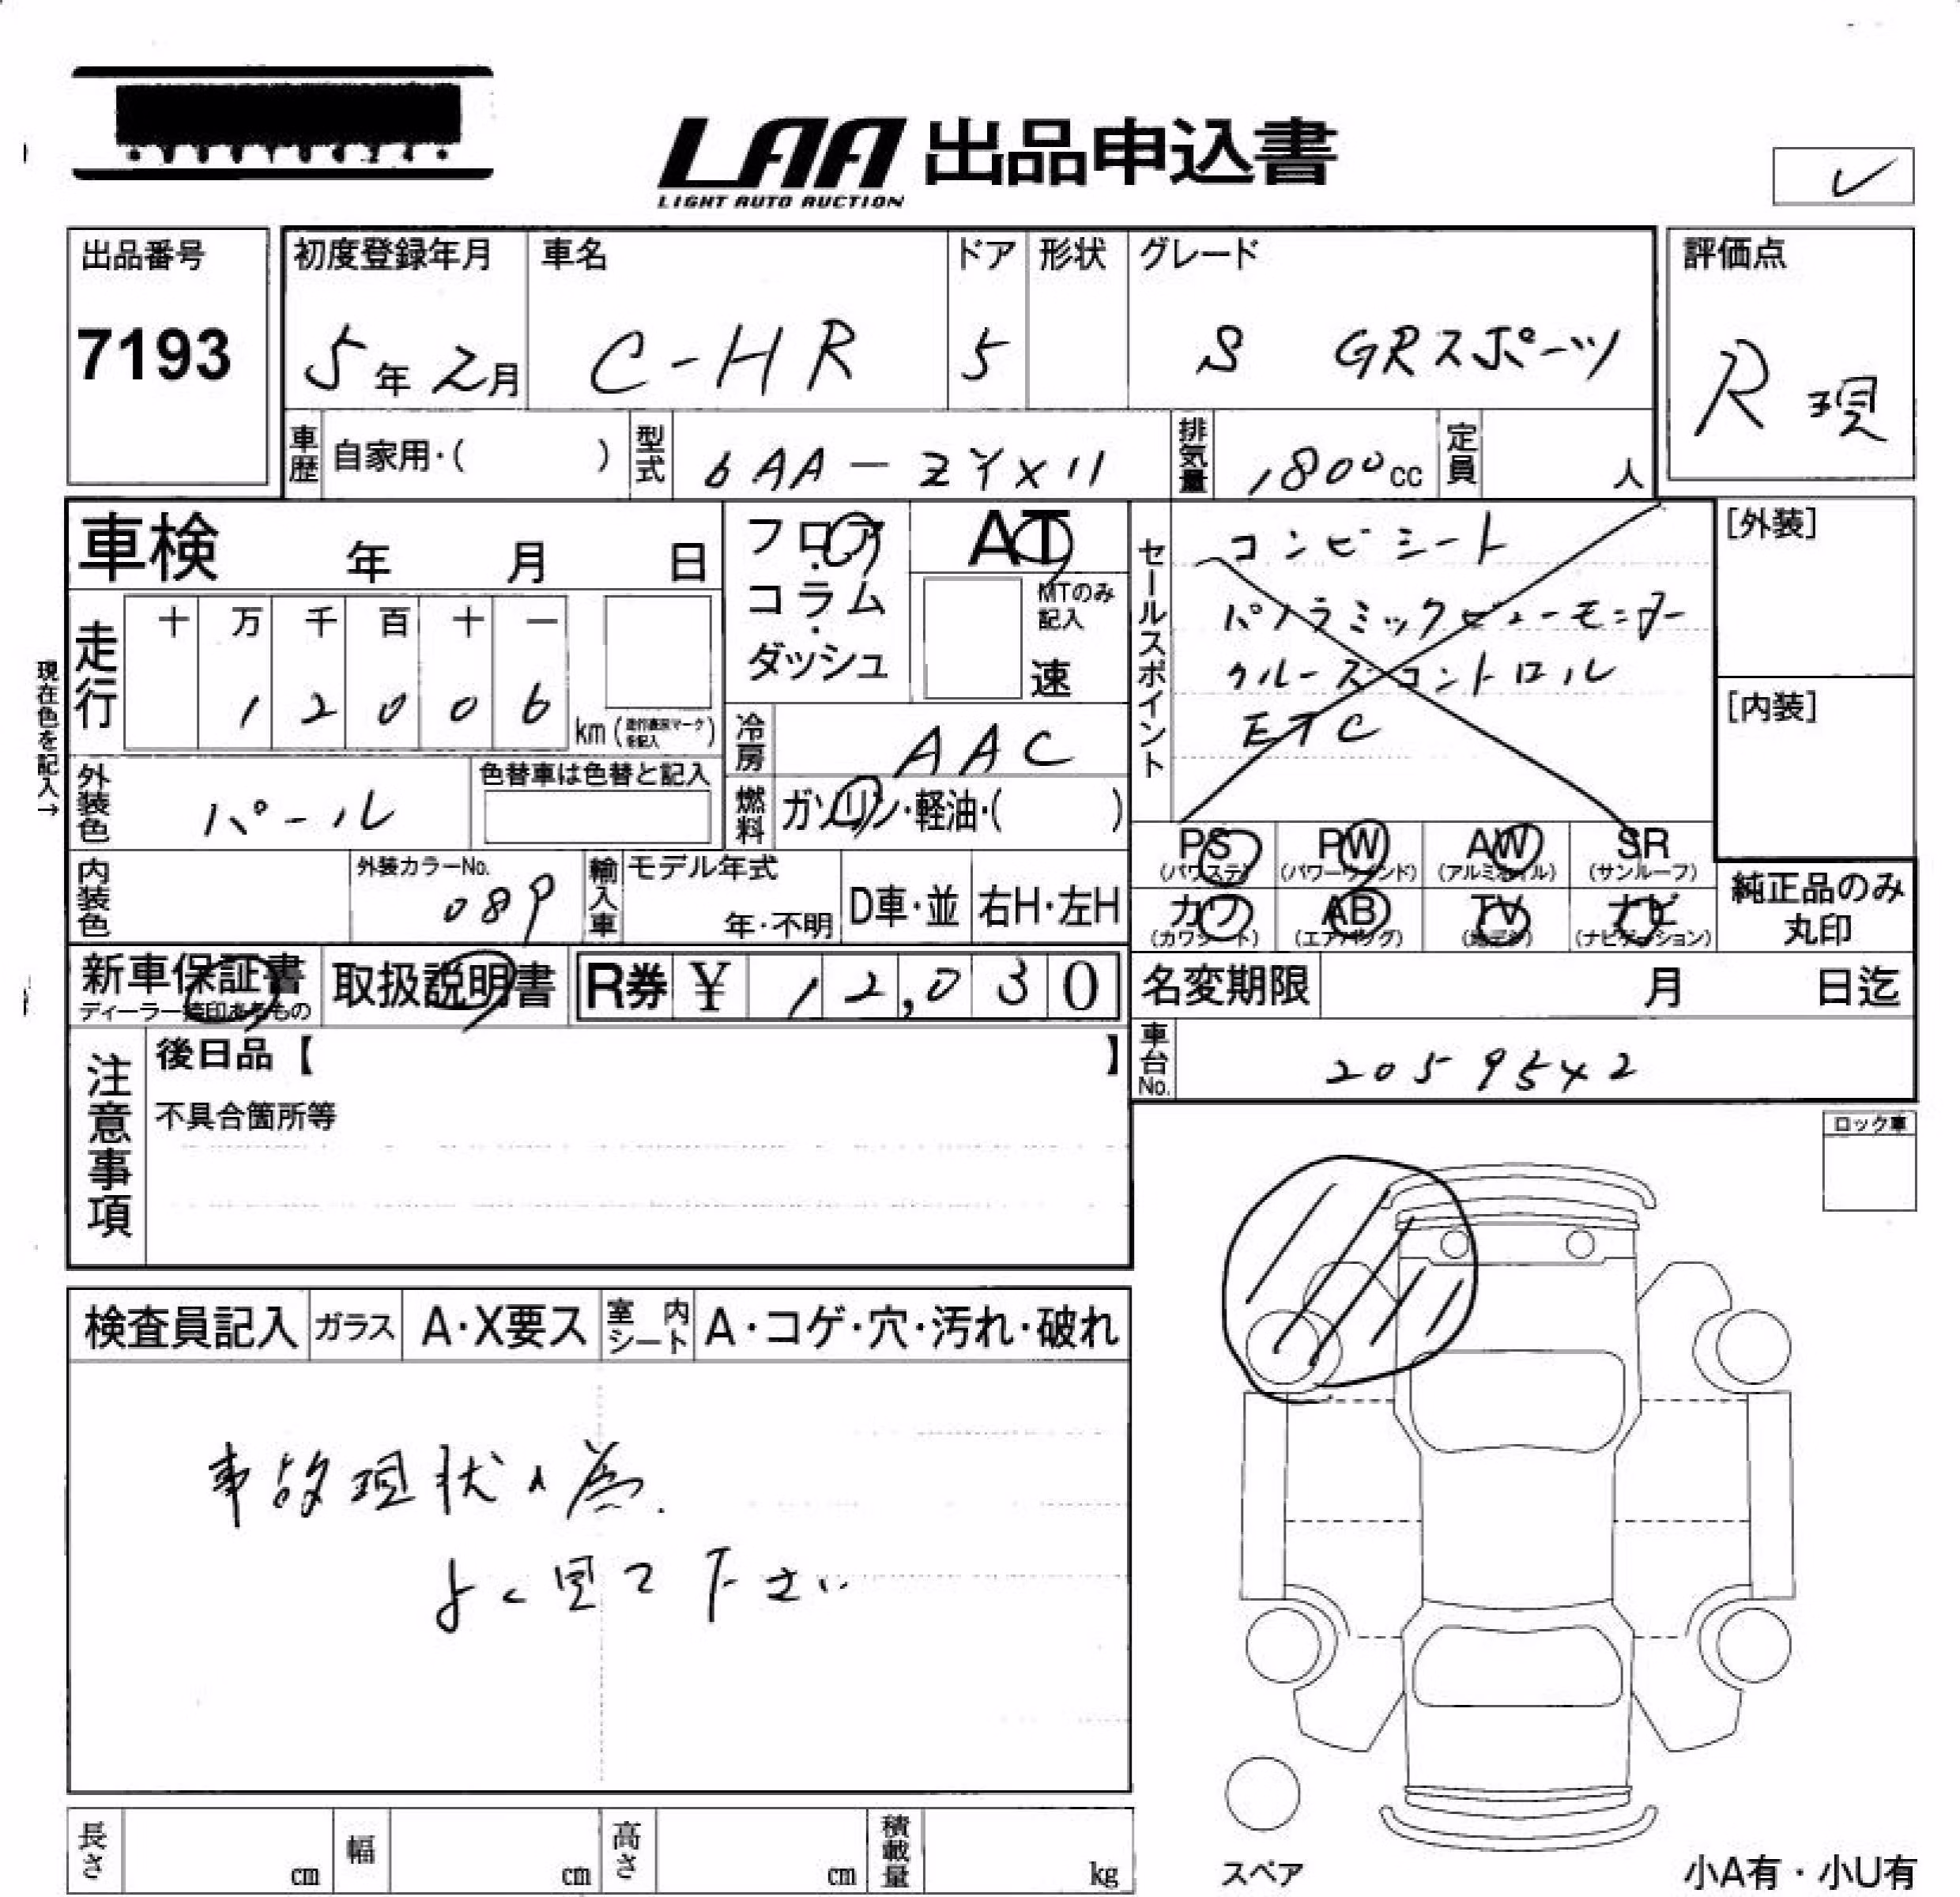 LAA 出品申込書
LIGHT AUTO AUCTION
出品番号
7193
初度登録年月
5年2月
車名
C-HR
ドア
5
形状
グレード
S GRスポーツ
評価点
R 現
車歴
自家用・( )
型式
6AA-ZYX11
排気量
1800cc
定員
人
車検 年 月 日
フロア
・
コラム
・
ダッシュ
AT
MTのみ
記入
速
セールスポイント
コンビシート
パノラミックビューモニター
クルーズコントロール
ETC
[外装]
[内装]
現在色を記入→
走行
十 万 千 百 十 一
1 2 0 0 6
km
冷房
AAC
外装色
パール
色替車は色替と記入
燃料
ガソリン・軽油・( )
内装色
外装カラーNo.
089
輸入車
モデル年式
年・不明
D車・並
右H・左H
PS
(パワステ)
PW
(パワーウインド)
AW
(アルミホイル)
SR
(サンルーフ)
カワ
(カワシート)
AB
(エアバッグ)
TV
(地デジ)
ナビ
(ナビゲーション)
純正品のみ
丸印
新車保証書
ディーラー捺印あるもの
取扱説明書
R券 ¥ 12,030
名変期限 月 日迄
注意事項
後日品【 】
不具合箇所等
車台No.
20595X2
ロック車
検査員記入
ガラス
A・X要ス
室内
シート
A・コゲ・穴・汚れ・破れ
事故現状の為
よく見て下さい
長さ cm
幅 cm
高さ cm
積載量 kg
スペア
小A有・小U有